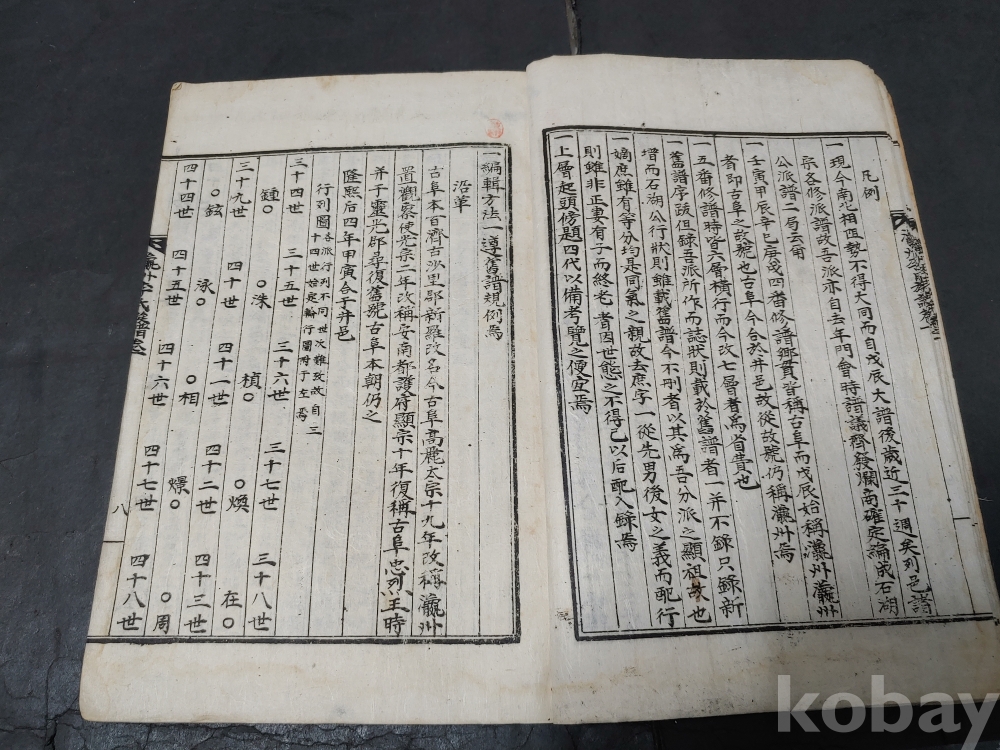 凡例
一現今南北相阻勢不得大同而自戊辰大譜後歲近三十週矣列邑諸
宗各修派譜故吾派亦自去年門會時譜議齊發爛商確定論成石湖
公派譜二局云爾
一壬寅甲辰辛巳庚戌四番修譜鄕貫皆稱古阜而戊辰始稱瀛州瀛州
者卽古阜之故號也古阜今合於井邑故從故號仍稱瀛州焉
一五番修譜時皆六層橫行而今改七層者爲省費也
一舊譜序跋但錄吾派所作而誌狀則載於舊譜者一并不錄只錄新
增而石湖公行狀則雖載舊譜今不刪者以其爲吾分派之顯祖故也
一嫡庶雖有等分均是同氣之親故去庶字一從先男後女之義而配行
則雖非正妻有子而終老者因世態之不得已以后配入錄焉
一上層起頭傍題四代以備考覽之便宜焉
一編輯方法一遵舊譜規例焉
沿革
古阜本百濟古沙里郡新羅改名今古阜高麗太宗十九年改稱瀛州
置觀察使光宗二年改稱安南都護府顯宗十年復稱古阜忠烈王時
并于靈光郡尋復舊號古阜本朝仍之
隆熙后四年甲寅合于井邑
行列圖 各派行列不同世次難攷故自三
十四世始定輪行圖附于左焉
三十四世 三十五世 三十六世 三十七世 三十八世
鍾○ ○洙 楨○ ○煥 在○
三十九世 四十世 四十一世 四十二世 四十三世
○鉉 泳○ ○相 燝○ ○周
四十四世 四十五世 四十六世 四十七世 四十八世
八
kobay